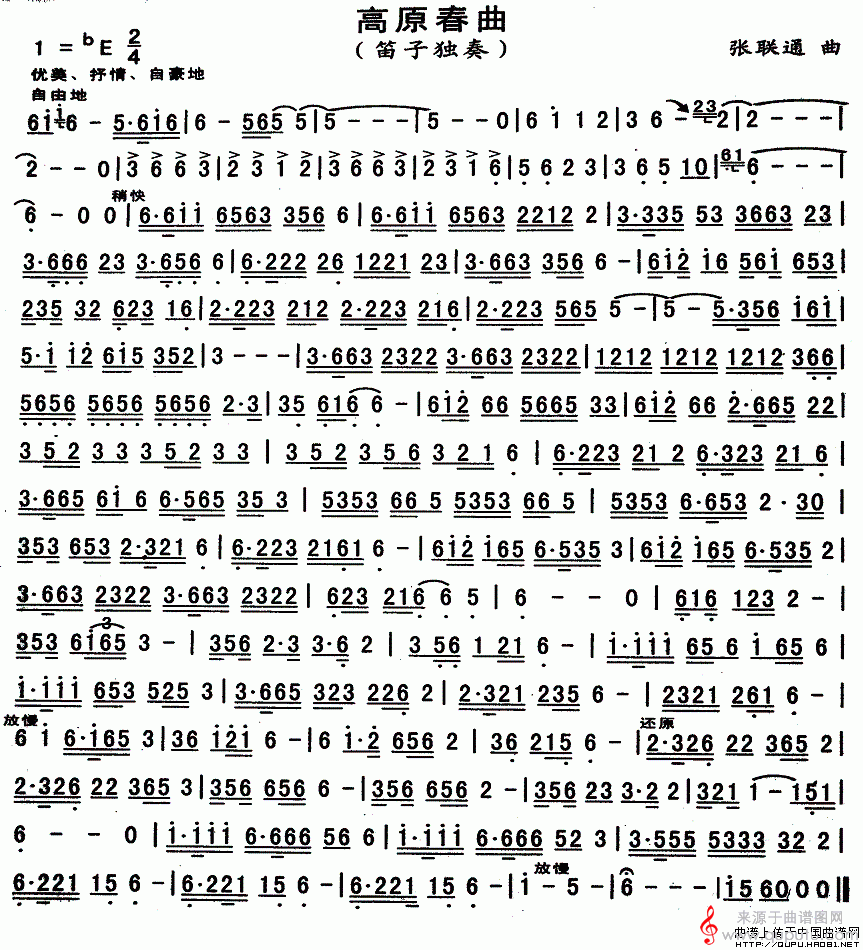 高原春曲
1 = ♭E 2/4
（笛子独奏）
张联通 曲
优美、抒情、自豪地
自由地
6 i 6 - 5·6i6 | 6 - 565 5 | 5 - - - | 5 - - 0 | 6 i 1 2 | 3 6 - 2 | 2 - - - |
2 - - 0 | 3 6 6 3 | 2 3 1 2 | 3 6 6 3 | 2 3 1 6 | 5 6 2 3 | 3 6 5 10 | 6 - - -
稍快
6 - 0 0 | 6·6ii 6563 356 6 | 6·6ii 6563 2212 2 | 3·335 53 3663 23 |
3·666 23 3·656 6 | 6·222 26 1221 23 | 3·663 356 6 - | 6i2 i6 56i 653 |
235 32 623 16 | 2·223 212 2·223 216 | 2·223 565 5 - | 5 - 5·356 i6i |
5·i i2 6i5 352 | 3 - - - | 3·663 2322 3·663 2322 | 1212 1212 1212 366 |
5656 5656 5656 2·3 | 35 616 6 - | 6i2 66 5665 33 | 6i2 66 2·665 22 |
3 5 2 3 3 3 5 2 3 3 | 3 5 2 3 5 6 3 2 1 6 | 6·223 21 2 6·323 21 6 |
3·665 6i 6 6·565 35 3 | 5353 66 5 5353 66 5 | 5353 6·653 2 · 30 |
353 653 2·321 6 | 6·223 2161 6 - | 6i2 i65 6·535 3 | 6i2 i65 6·535 2 |
3·663 2322 3·663 2322 | 623 216 6 5 | 6 - - 0 | 616 123 2 - |
353 6i65 3 - | 356 2·3 3·6 2 | 3 56 1 21 6 | i·iii 65 6 i 65 6 |
i·iii 653 525 3 | 3·665 323 226 2 | 2·321 235 6 - | 2321 261 6 - |
放慢
还原
6 i 6·i65 3 | 36 i2i 6 - | 6 i·2 656 2 | 36 215 6 - | 2·326 22 365 2 |
2·326 22 365 3 | 356 656 6 - | 356 656 2 - | 356 23 3·2 2 | 321 1 - 151 |
6 - - 0 | i·iii 6·666 56 6 | i·iii 6·666 52 3 | 3·555 5333 32 2 |
放慢
6·221 15 6 - | 6·221 15 6 - | 6·221 15 6 - | i - 5 - | 6 - - - | i5 6000 ‖
来源于曲谱图网
曲谱上传于中国曲谱网
HTTP://QUPU.HAO81.NET